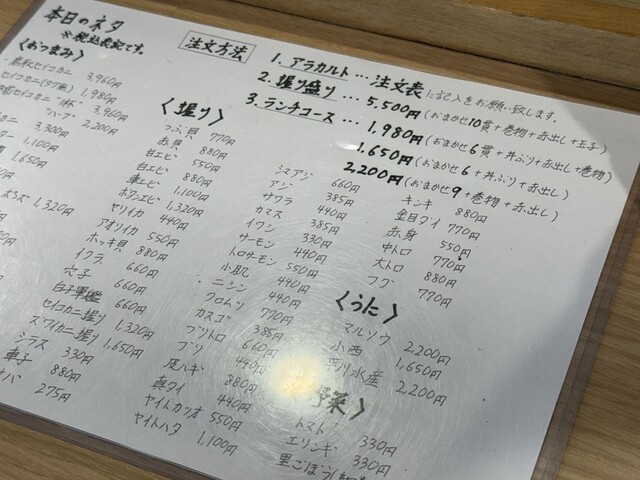 本日のネタ
※税込表記です。
〈おつまみ〉
セイコカニ 3,960円
セイコカニ 1,980円
3,960円
ハーフ 2,200円
3,300円
1,100円
1,650円
1,320円
注文方法
1. アラカルト … 注文表に記入をお願い致します。
2. 握り盛り … 5,500円(おまかせ10貫+巻物+赤出し+玉子)
3. ランチコース … 1,980円(おまかせ6貫+丼ぶり+赤出し+巻物)
1,650円(おまかせ6+丼ぶり+赤出し)
2,200円(おまかせ9+巻物+赤出し)
〈握り〉
つぶ貝 770円
赤貝 880円
甘エビ 550円
白エビ 880円
車エビ 1,100円
ボタンエビ 1,320円
ヤリイカ 440円
アオリイカ 550円
ホッキ貝 880円
イクラ 660円
穴子 660円
白子軍艦 660円
セイコカニ握り 1,320円
ズワイカニ握り 1,650円
シラス 330円
880円
275円
シマアジ 660円
アジ 385円
サワラ 440円
カマス 385円
イワシ 330円
サーモン 440円
トロサーモン 550円
小肌 440円
ニシン 440円
クロムツ 770円
カスゴ 385円
ブリトロ 660円
ブリ 440円
尻ハギ 880円
440円
ヤイトカツオ 550円
ヤイトハタ 1,100円
キンキ 880円
金目ダイ 770円
赤身 550円
中トロ 770円
大トロ 880円
フグ 770円
〈うに〉
マルソウ 2,200円
小西 1,650円
平川水産 2,200円
野菜〉
トマト 330円
エリンギ 330円
里ごぼう